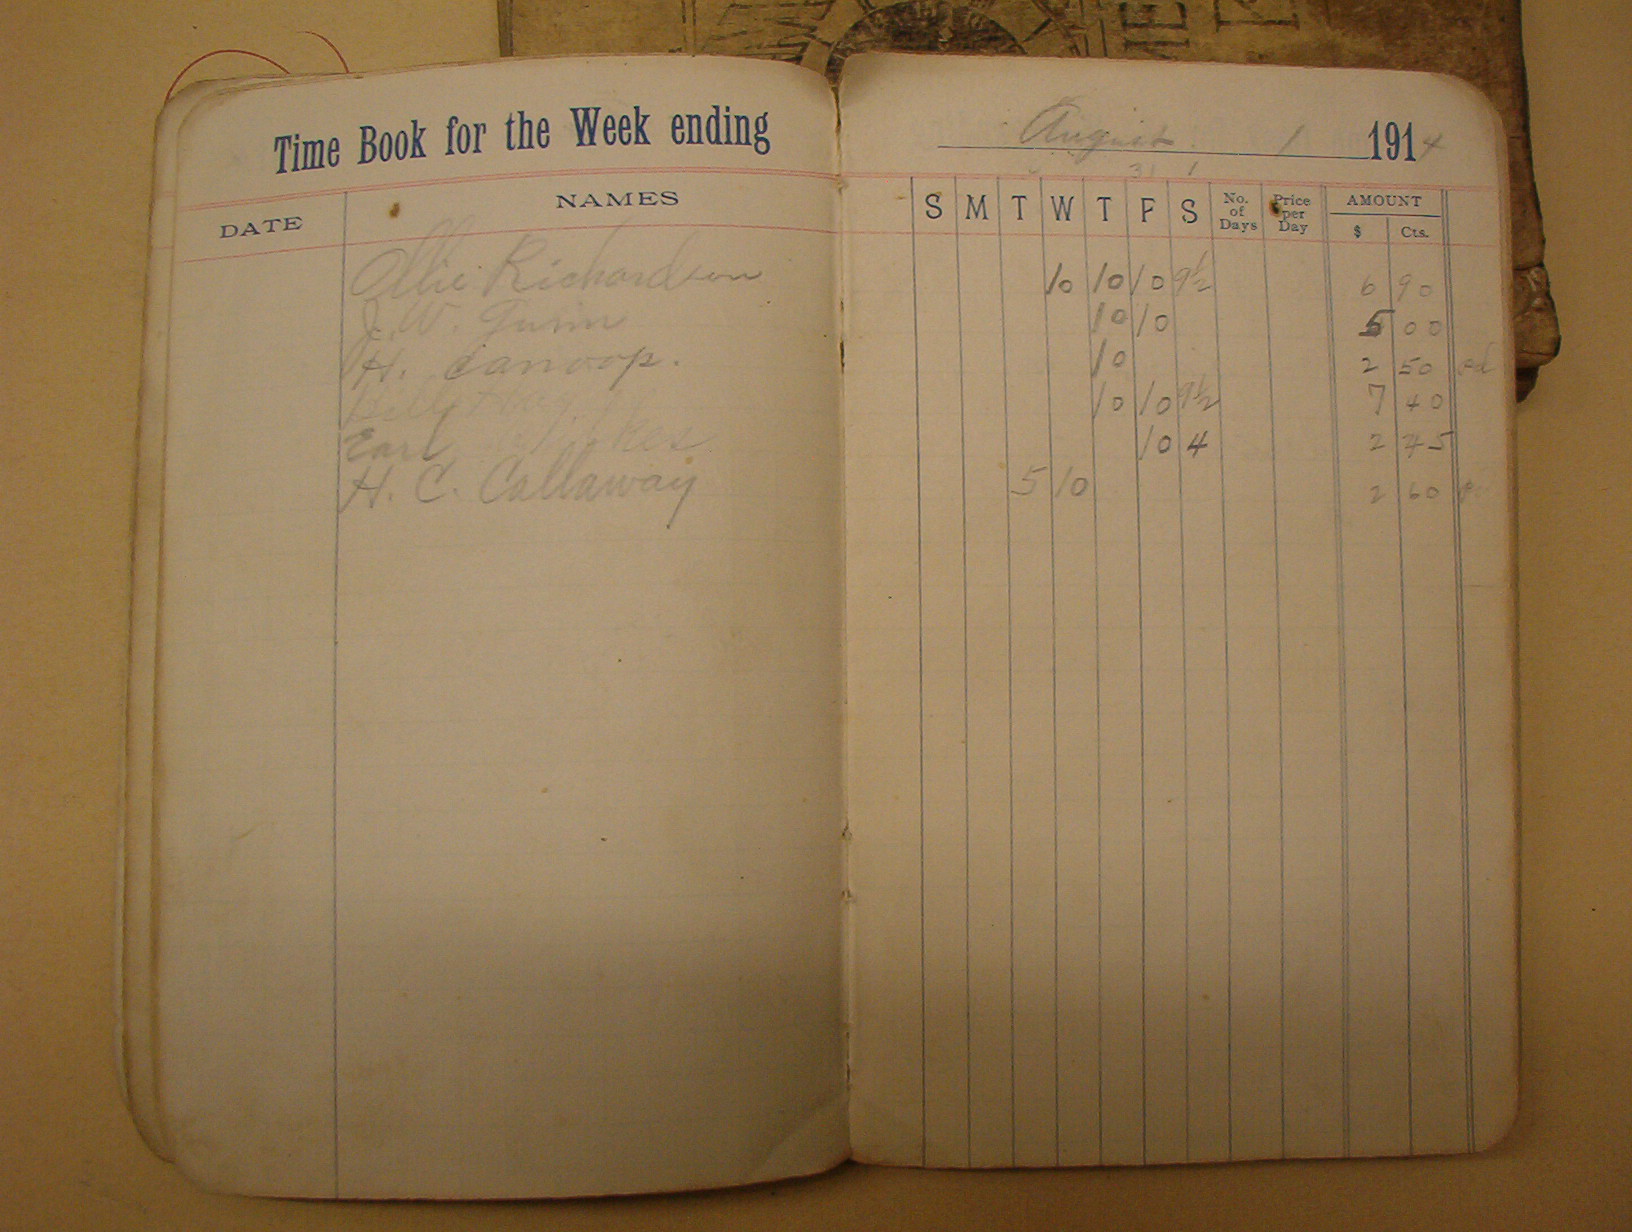 Time Book for the Week ending August 1 1914
31 1
DATE NAMES S M T W T F S No. of Days Price per Day AMOUNT $ Cts.
Ollie Richardson 10 10 10 9½ 6 90
J. W. Guinn 10 10 5 00
H. Canoop. 10 2 50 pd
10 10 9½ 7 40
Earl 10 4 2 45
H. C. Callaway 5 10 2 60 pd